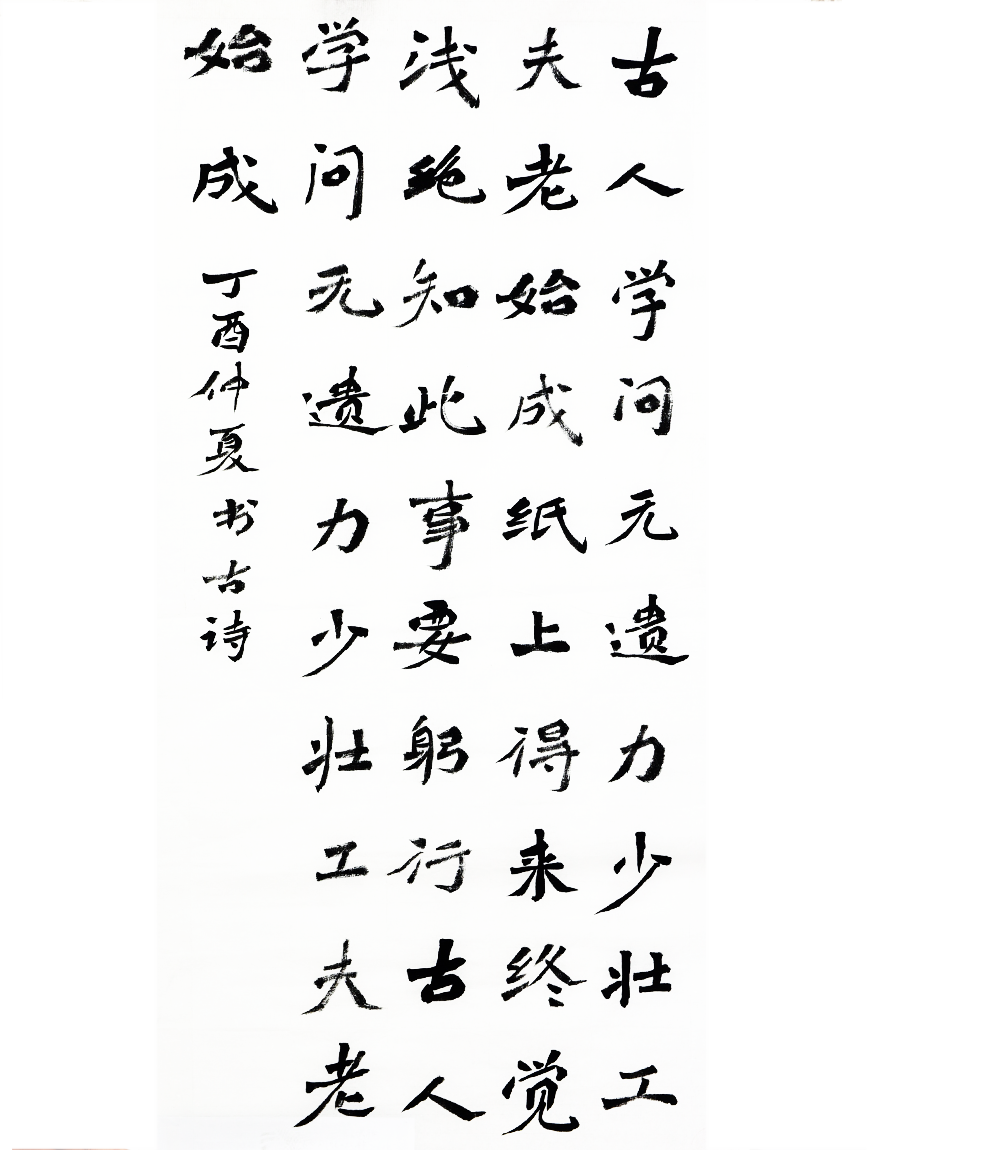 古人学问无遗力少壮工
夫老始成纸上得来终觉
浅绝知此事要躬行古人
学问无遗力少壮工夫老
始成
丁酉仲夏书古诗